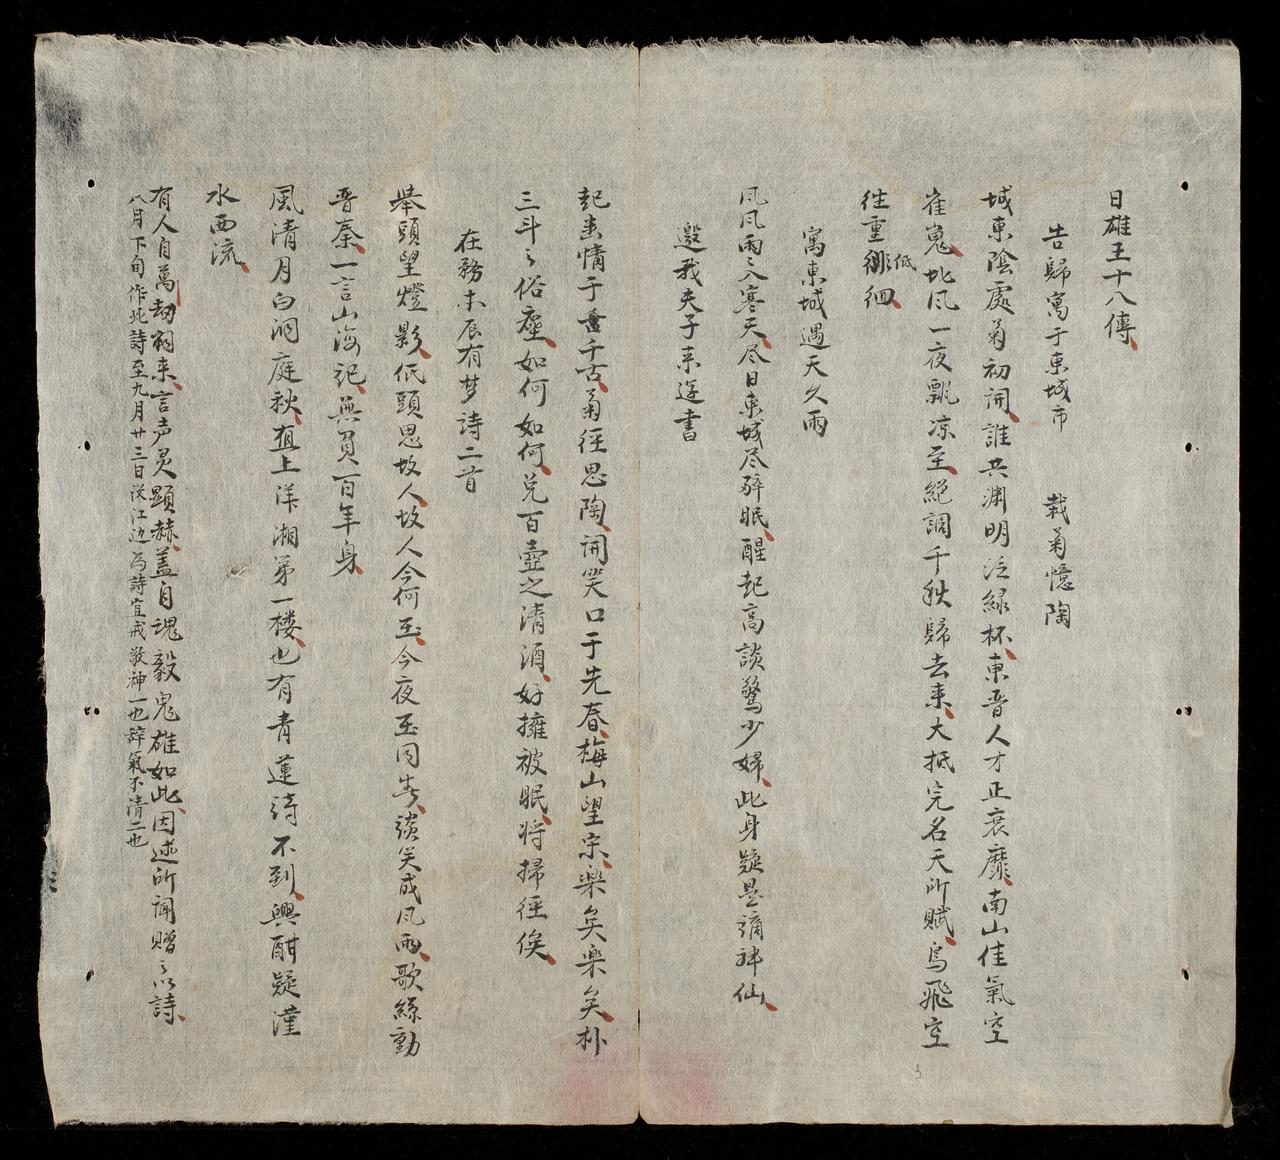 日雄王十八傳
告歸寓于東城市　栽菊憶陶
城東陰處菊初開誰共淵明泛緑杯東晋人才正衰靡南山佳氣空
崔嵬北风一夜飄凉至絕調千秋歸去来大抵完名天所賦鳥飛空
徃重徘低徊
寓東城遇天久雨
风风雨〻入寒天尽日東城尽醉眠醒起高談驚少婦此身疑是謫神仙
邀我夫子来筵書
起幽情于千古菊徑思陶開笑口于先春梅山望宗楽矣楽矣朴
三斗〻俗塵如何如何兑百壼之清酒好擁被眠将掃徑俟
在務末辰有梦詩二首
举頭望燈影低頭思故人故人今何至今夜至同舟談笑成风雨歌絲動
晋秦一言山海記無負百年身
風清月白洞庭秋直上洋湘第一楼也有青蓮詩不到興酣疑漢
水西流
有人自萬刼祠来言声灵顕赫盖自魂毅鬼雄如此因述所聞贈〻以詩
八月下旬作此詩至九月廿三日泛江边為詩宜戒敬神一也辞氣不清二也